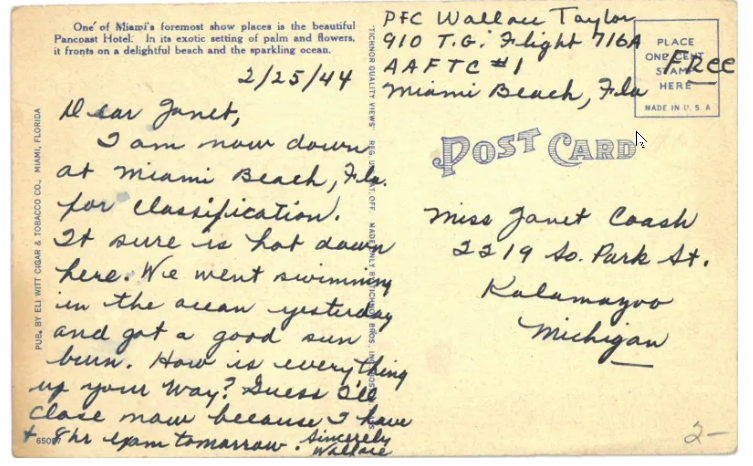 One of Miami's foremost show places is the beautiful
Pancoast Hotel. In its exotic setting of palm and flowers,
it fronts on a delightful beach and the sparkling ocean.
2/25/44
Dear Janet,
I am now down
at Miami Beach, Fla.
for classification.
It sure is hot down
here. We went swimming
in the ocean yesterday
and got a good sun
burn. How is everything
up your way? Guess I'll
close now because I have
8 hr exam tomorrow. Sincerely
Wallace
PUB. BY ELI WITT CIGAR & TOBACCO CO., MIAMI, FLORIDA
TICHNOR QUALITY VIEWS REG. U. S. PAT. OFF. MADE ONLY BY TICHNOR BROS., INC.
PFC Wallace Taylor
910 T.G. Flight 716A
AAFTC #1
Miami Beach, Fla
PLACE
ONE CENT
STAMP
HERE
MADE IN U. S. A
Free
POST CARD
Miss Janet Coash
2219 So. Park St.
Kalamazoo
Michigan
2-